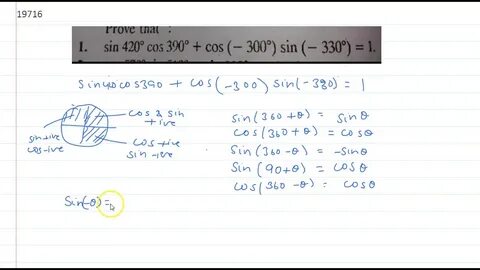 19716
Prove that :
1. sin 420° cos 390° + cos (– 300°) sin (– 330°) = 1.
sin420cos390 + cos(-300) sin(-330) = 1
cos & sin
+ive
sin+ive
cos-ive
cos+ive
sin -ive
sin(360+θ) = sinθ
cos(360+θ) = cosθ
sin(360-θ) = -sinθ
sin(90+θ) = cosθ
cos(360-θ) = cosθ
sin(-θ) =